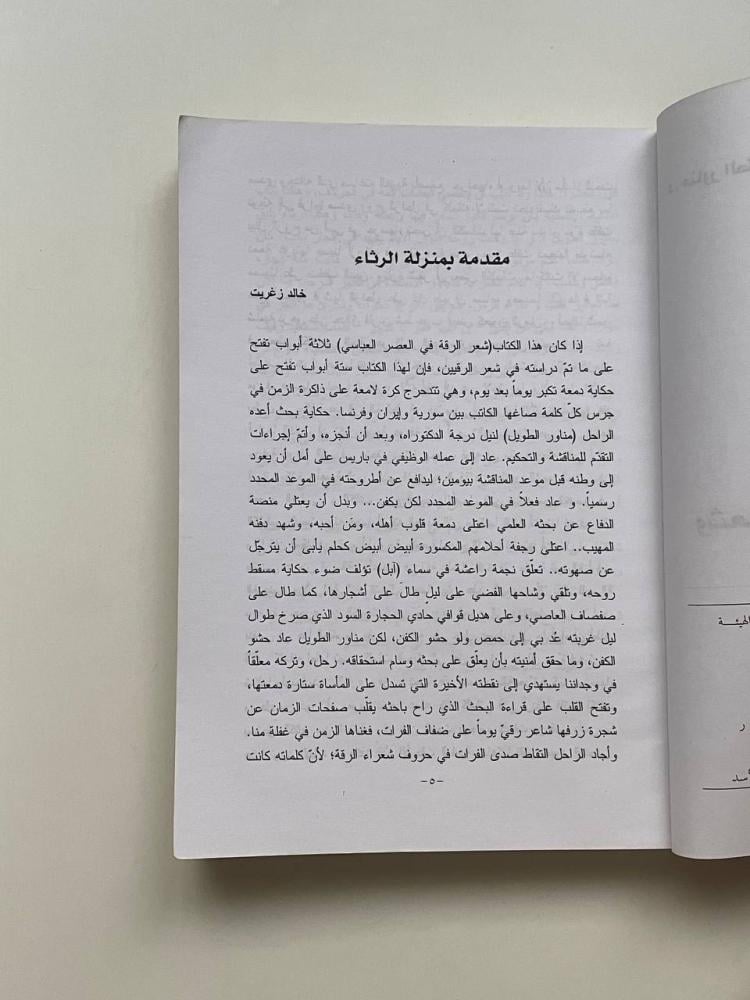 مقدمة بمنزلة الرثاء
خالد زغريت
إذا كان هذا الكتاب(شعر الرقة في العصر العباسي) ثلاثة أبواب تفتح
على ما تمّ دراسته في شعر الرقيين، فإن لهذا الكتاب ستة أبواب تفتح على
حكاية دمعة تكبر يوماً بعد يوم، وهي تتدحرج كرة لامعة على ذاكرة الزمن في
جرس كلّ كلمة صاغها الكاتب بين سورية وإيران وفرنسا. حكاية بحث أعده
الراحل (مناور الطويل) لنيل درجة الدكتوراه، وبعد أن أنجزه، وأتمّ إجراءات
التقدّم للمناقشة والتحكيم. عاد إلى عمله الوظيفي في باريس على أمل أن يعود
إلى وطنه قبل موعد المناقشة بيومين؛ ليدافع عن أطروحته في الموعد المحدد
رسمياً. و عاد فعلاً في الموعد المحدد لكن بكفن... وبدل أن يعتلي منصة
الدفاع عن بحثه العلمي اعتلى دمعة قلوب أهله، ومَن أحبه، وشهد دفنه
المهيب.. اعتلى رجفة أحلامهم المكسورة أبيض أبيض كحلم يأبى أن يترجّل
عن صهوته.. تعلّق نجمة راعشة في سماء (آبل) تؤلف ضوء حكاية مسقط
روحه، وتلقي وشاحها الفضي على ليلٍ طالَ على أشجارها، كما طال على
صفصاف العاصي، وعلى هديل قوافي حادي الحجارة السود الذي صرخ طوال
ليل غربته عُد بي إلى حمص ولو حشو الكفن، لكن مناور الطويل عاد حشو
الكفن، وما حقق أمنيته بأن يعلّق على بحثه وسام استحقاقه. رحل، وتركه معلّقاً
في وجداننا يستهدي إلى نقطته الأخيرة التي تسدل على المأساة ستارة دمعتها،
وتفتح القلب على قراءة البحث الذي راح باحثه يقلّب صفحات الزمان عن
شجرة زرفها شاعر رقيّ يوماً على ضفاف الفرات، فغناها الزمن في غفلة منا.
وأجاد الراحل التقاط صدى الفرات في حروف شعراء الرقة؛ لأنّ كلماته كانت
-٥-